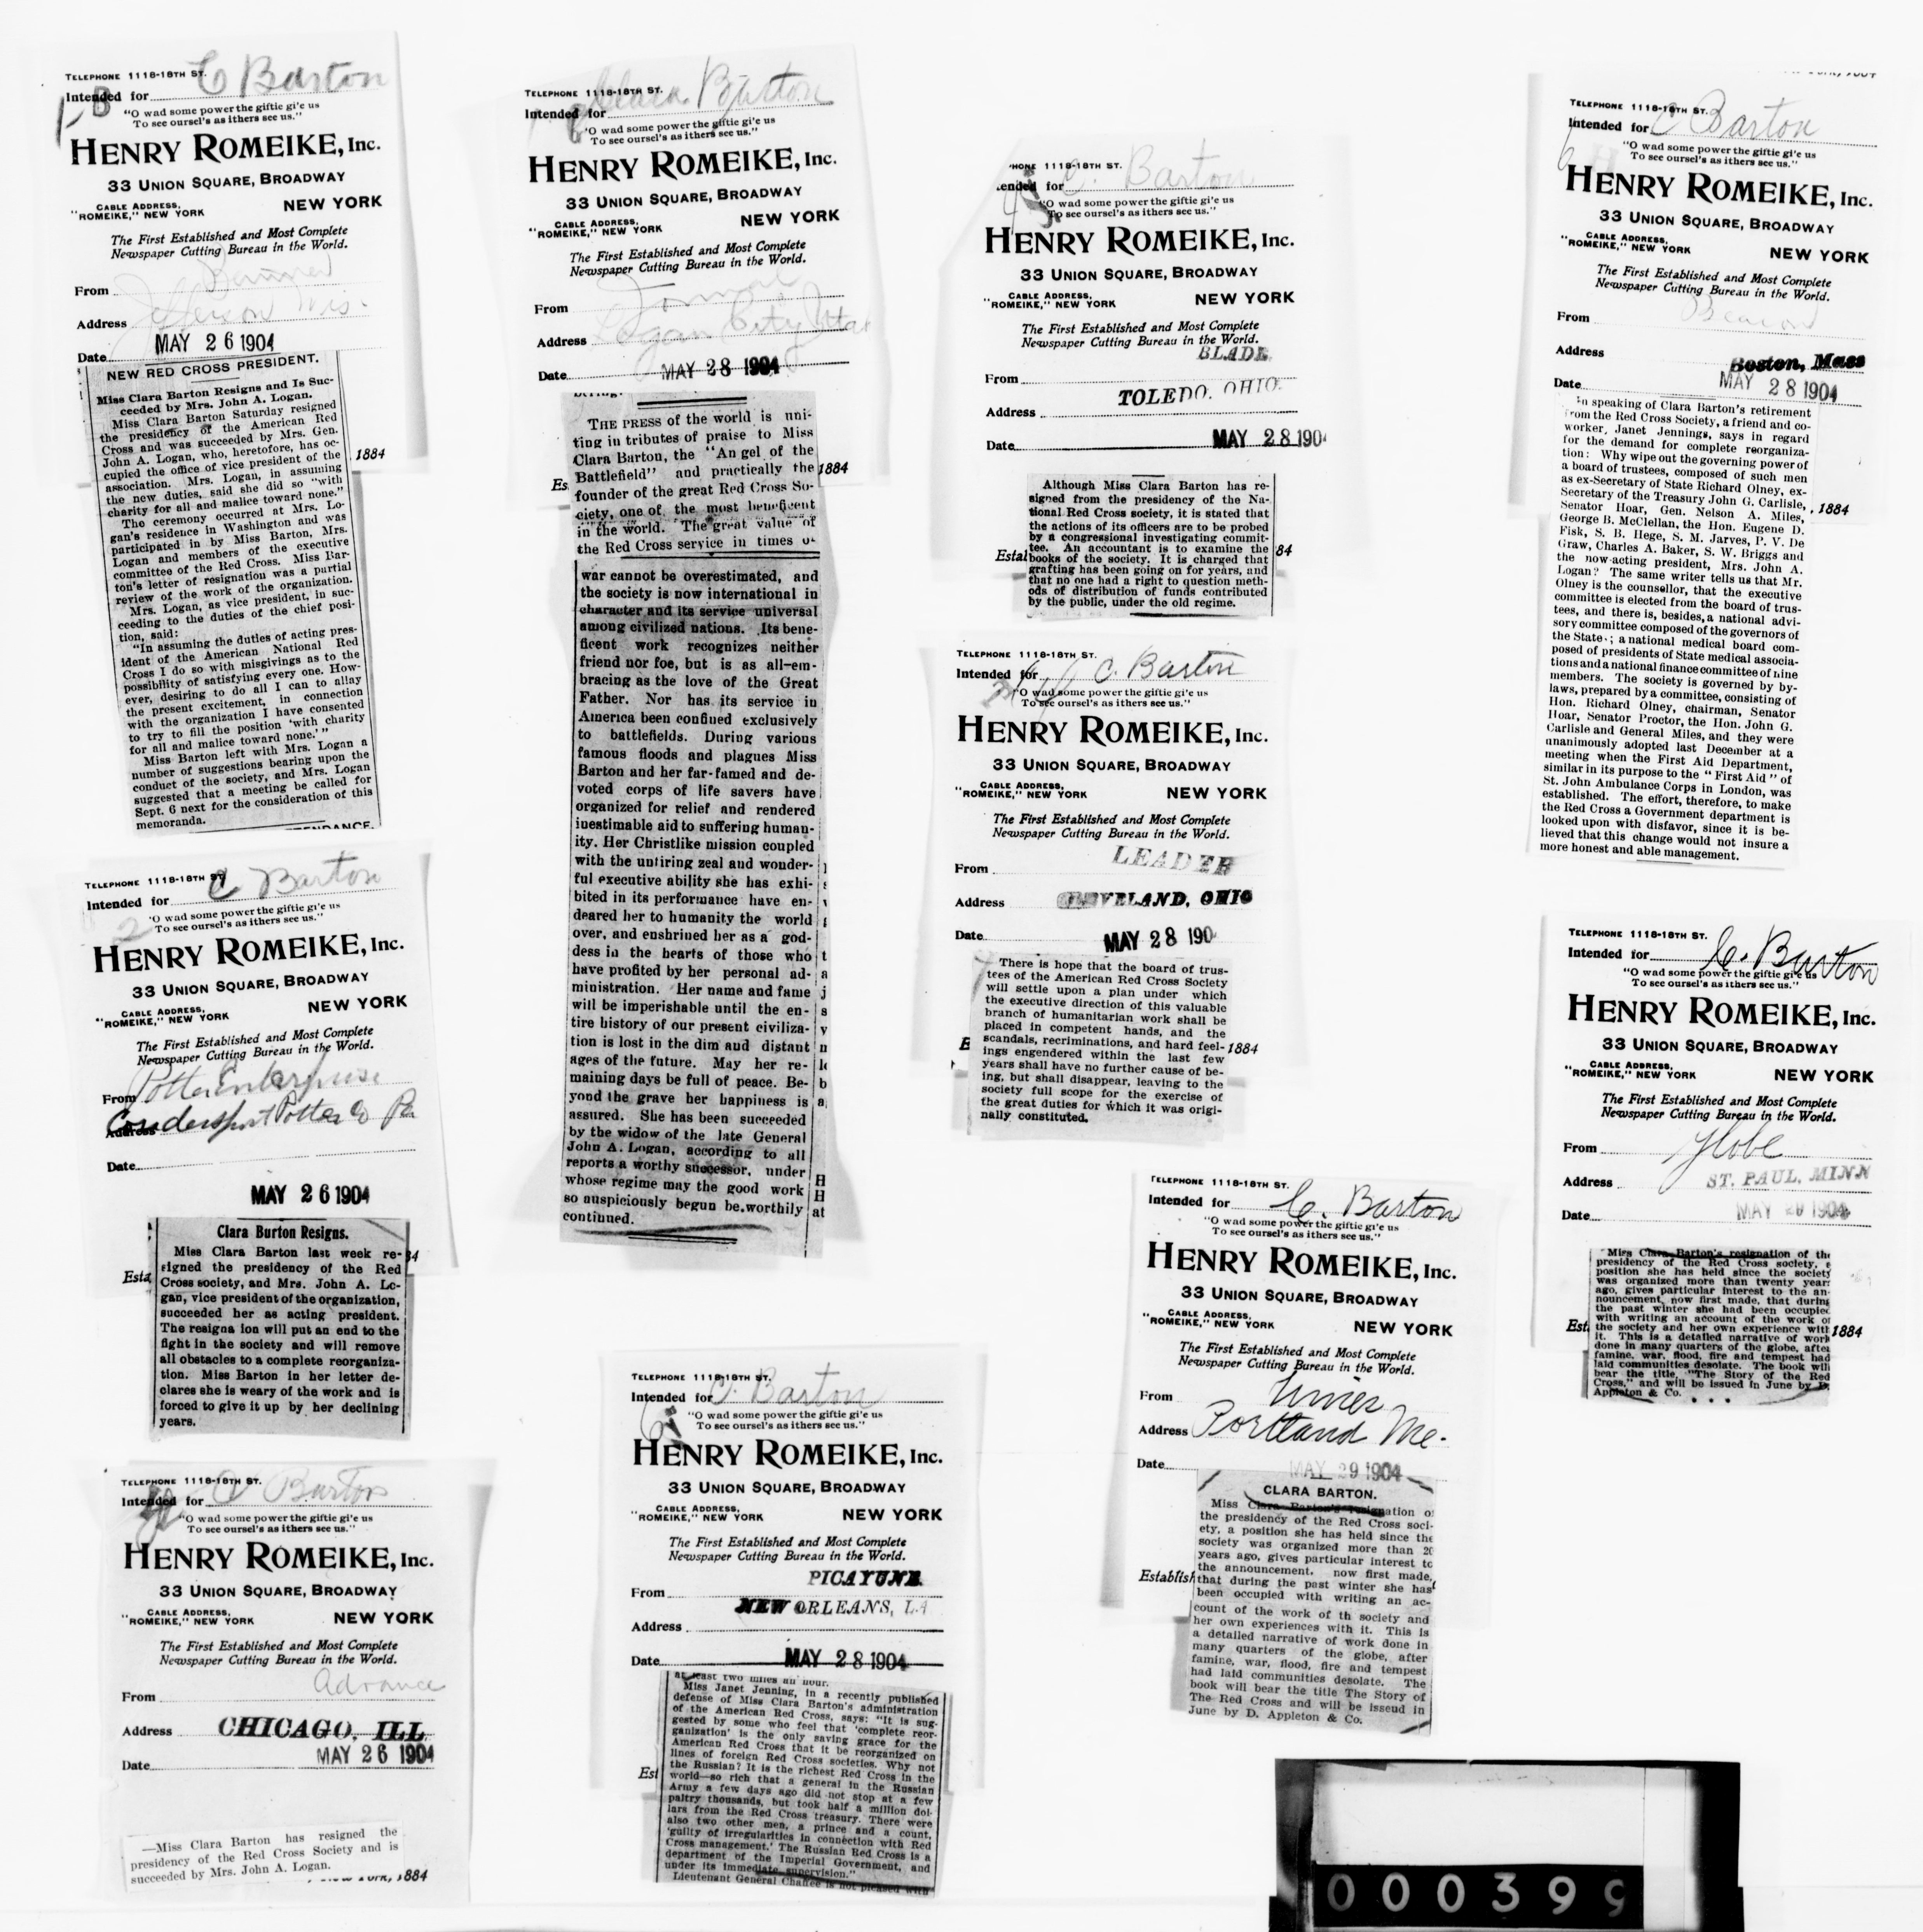 TELEPHONE 1118-18TH ST.
Intended for C Barton
B
"O wad some power the giftie gi'e us
To see oursel's as ithers see us."
HENRY ROMEIKE, Inc.
33 UNION SQUARE, BROADWAY
CABLE ADDRESS,
"ROMEIKE," NEW YORK
NEW YORK
The First Established and Most Complete
Newspaper Cutting Bureau in the World.
From Banner
Address Jefferson Wis.
Date MAY 26 1904
NEW RED CROSS PRESIDENT.
Miss Clara Barton Resigns and Is Suc-
ceeded by Mrs. John A. Logan.
Miss Clara Barton Saturday resigned
the presidency of the American Red
Cross and was succeeded by Mrs. Gen.
John A. Logan, who, heretofore, has oc-
cupied the office of vice president of the
association. Mrs. Logan, in assuming
the new duties, said she did so "with
charity for all and malice toward none."
The ceremony occurred at Mrs. Lo-
gan's residence in Washington and was
participated in by Miss Barton, Mrs.
Logan and members of the executive
committee of the Red Cross. Miss Bar-
ton's letter of resignation was a partial
review of the work of the organization.
Mrs. Logan, as vice president, in suc-
ceeding to the duties of the chief posi-
tion, said:
"In assuming the duties of acting pres-
ident of the American National Red
Cross I do so with misgivings as to the
possibility of satisfying every one. How-
ever, desiring to do all I can to allay
the present excitement, in connection
with the organization I have consented
to try to fill the position 'with charity
for all and malice toward none.'"
Miss Barton left with Mrs. Logan a
number of suggestions bearing upon the
conduct of the society, and Mrs. Logan
suggested that a meeting be called for
Sept. 6 next for the consideration of this
memoranda.
1884
TELEPHONE 1118-18TH ST.
Intended for C Barton
2
"O wad some power the giftie gi'e us
To see oursel's as ithers see us."
HENRY ROMEIKE, Inc.
33 UNION SQUARE, BROADWAY
CABLE ADDRESS,
"ROMEIKE," NEW YORK
NEW YORK
The First Established and Most Complete
Newspaper Cutting Bureau in the World.
From Potter Enterprise
Address Coudersport Potter Co Pa
Date
MAY 26 1904
Clara Burton Resigns.
Miss Clara Barton last week re-
signed the presidency of the Red
Cross society, and Mrs. John A. Lo-
gan, vice president of the organization,
succeeded her as acting president.
The resigna ion will put an end to the
fight in the society and will remove
all obstacles to a complete reorganiza-
tion. Miss Barton in her letter de-
clares she is weary of the work and is
forced to give it up by her declining
years.
Esta
84
TELEPHONE 1118-18TH ST.
Intended for C Barton
"O wad some power the giftie gi'e us
To see oursel's as ithers see us."
HENRY ROMEIKE, Inc.
33 UNION SQUARE, BROADWAY
CABLE ADDRESS,
"ROMEIKE," NEW YORK
NEW YORK
The First Established and Most Complete
Newspaper Cutting Bureau in the World.
From Advance
Address CHICAGO, ILL
Date MAY 26 1904
—Miss Clara Barton has resigned the
presidency of the Red Cross Society and is
succeeded by Mrs. John A. Logan.
1884
TELEPHONE 1118-18TH ST.
Intended for Clara Barton
"O wad some power the giftie gi'e us
To see oursel's as ithers see us."
HENRY ROMEIKE, Inc.
33 UNION SQUARE, BROADWAY
CABLE ADDRESS,
"ROMEIKE," NEW YORK
NEW YORK
The First Established and Most Complete
Newspaper Cutting Bureau in the World.
From Journal
Address Logan City Utah
Date MAY 28 1904
THE PRESS of the world is uni-
ting in tributes of praise to Miss
Clara Barton, the "Angel of the
Battlefield" and practically the
founder of the great Red Cross So-
ciety, one of the most beneficent
in the world. The great value of
the Red Cross service in times of
war cannot be overestimated, and
the society is now international in
character and its service universal
among civilized nations. Its bene-
ficent work recognizes neither
friend nor foe, but is as all-em-
bracing as the love of the Great
Father. Nor has its service in
America been confined exclusively
to battlefields. During various
famous floods and plagues Miss
Barton and her far-famed and de-
voted corps of life savers have
organized for relief and rendered
inestimable aid to suffering human-
ity. Her Christlike mission coupled
with the untiring zeal and wonder-
ful executive ability she has exhi-
bited in its performance have en-
deared her to humanity the world
over, and enshrined her as a god-
dess in the hearts of those who
have profited by her personal ad-
ministration. Her name and fame
will be imperishable until the en-
tire history of our present civiliza-
tion is lost in the dim and distant
ages of the future. May her re-
maining days be full of peace. Be-
yond the grave her happiness is
assured. She has been succeeded
by the widow of the late General
John A. Logan, according to all
reports a worthy successor, under
whose regime may the good work
so auspiciously begun be worthily
continued.
Es
1884
TELEPHONE 1118-18TH ST.
Intended for C. Barton
6
"O wad some power the giftie gi'e us
To see oursel's as ithers see us."
HENRY ROMEIKE, Inc.
33 UNION SQUARE, BROADWAY
CABLE ADDRESS,
"ROMEIKE," NEW YORK
NEW YORK
The First Established and Most Complete
Newspaper Cutting Bureau in the World.
From PICAYUNE
Address NEW ORLEANS, LA
Date MAY 28 1904
at least two miles an hour.
Miss Janet Jenning, in a recently published
defense of Miss Clara Barton's administration
of the American Red Cross, says: "It is sug-
gested by some who feel that 'complete reor-
ganization' is the only saving grace for the
American Red Cross that it be reorganized on
lines of foreign Red Cross societies. Why not
the Russian? It is the richest Red Cross in the
world—so rich that a general in the Russian
Army a few days ago did not stop at a few
paltry thousands, but took half a million dol-
lars from the Red Cross treasury. There were
also two other men, a prince and a count,
'guilty of irregularities in connection with Red
Cross management.' The Russian Red Cross is a
department of the Imperial Government, and
under its immediate supervision."
Lieutenant General Chaffee is not pleased with
Est
HONE 1118-18TH ST.
ended for C. Barton
"O wad some power the giftie gi'e us
To see oursel's as ithers see us."
HENRY ROMEIKE, Inc.
33 UNION SQUARE, BROADWAY
CABLE ADDRESS,
"ROMEIKE," NEW YORK
NEW YORK
The First Established and Most Complete
Newspaper Cutting Bureau in the World.
From BLADE
Address TOLEDO. OHIO.
Date MAY 28 190
Although Miss Clara Barton has re-
signed from the presidency of the Na-
tional Red Cross society, it is stated that
the actions of its officers are to be probed
by a congressional investigating commit-
tee. An accountant is to examine the
books of the society. It is charged that
grafting has been going on for years, and
that no one had a right to question meth-
ods of distribution of funds contributed
by the public, under the old regime.
Estal
84
TELEPHONE 1118-18TH ST.
Intended for C. Barton
"O wad some power the giftie gi'e us
To see oursel's as ithers see us."
HENRY ROMEIKE, Inc.
33 UNION SQUARE, BROADWAY
CABLE ADDRESS,
"ROMEIKE," NEW YORK
NEW YORK
The First Established and Most Complete
Newspaper Cutting Bureau in the World.
From LEADER
Address CLEVELAND, OHIO
Date MAY 28 190
There is hope that the board of trus-
tees of the American Red Cross Society
will settle upon a plan under which
the executive direction of this valuable
branch of humanitarian work shall be
placed in competent hands, and the
scandals, recriminations, and hard feel-
ings engendered within the last few
years shall have no further cause of be-
ing, but shall disappear, leaving to the
society full scope for the exercise of
the great duties for which it was origi-
nally constituted.
E
1884
TELEPHONE 1118-18TH ST.
Intended for C. Barton
"O wad some power the giftie gi'e us
To see oursel's as ithers see us."
HENRY ROMEIKE, Inc.
33 UNION SQUARE, BROADWAY
CABLE ADDRESS,
"ROMEIKE," NEW YORK
NEW YORK
The First Established and Most Complete
Newspaper Cutting Bureau in the World.
From Times
Address Portland Me.
Date MAY 29 1904
CLARA BARTON.
Miss Clara Barton's resignation of
the presidency of the Red Cross soci-
ety, a position she has held since the
society was organized more than 20
years ago, gives particular interest to
the announcement, now first made,
that during the past winter she has
been occupied with writing an ac-
count of the work of th society and
her own experiences with it. This is
a detailed narrative of work done in
many quarters of the globe, after
famine, war, flood, fire and tempest
had laid communities desolate. The
book will bear the title The Story of
The Red Cross and will be isseud in
June by D. Appleton & Co.
Establish
TELEPHONE 1118-18TH ST.
Intended for C Barton
"O wad some power the giftie gi'e us
To see oursel's as ithers see us."
HENRY ROMEIKE, Inc.
33 UNION SQUARE, BROADWAY
CABLE ADDRESS,
"ROMEIKE," NEW YORK
NEW YORK
The First Established and Most Complete
Newspaper Cutting Bureau in the World.
From Beacon
Address Boston, Mass
Date MAY 28 1904
In speaking of Clara Barton's retirement
from the Red Cross Society, a friend and co-
worker, Janet Jennings, says in regard
for the demand for complete reorganiza-
tion: Why wipe out the governing power of
a board of trustees, composed of such men
as ex-Secretary of State Richard Olney, ex-
Secretary of the Treasury John G. Carlisle,
Senator Hoar, Gen. Nelson A. Miles,
George B. McClellan, the Hon. Eugene D.
Fisk, S. B. Hege, S. M. Jarves, P. V. De
Graw, Charles A. Baker, S. W. Briggs and
the now-acting president, Mrs. John A.
Logan? The same writer tells us that Mr.
Olney is the counsellor, that the executive
committee is elected from the board of trus-
tees, and there is, besides, a national advi-
sory committee composed of the governors of
the State; a national medical board com-
posed of presidents of State medical associa-
tions and a national finance committee of nine
members. The society is governed by by-
laws, prepared by a committee, consisting of
Hon. Richard Olney, chairman, Senator
Hoar, Senator Proctor, the Hon. John G.
Carlisle and General Miles, and they were
unanimously adopted last December at a
meeting when the First Aid Department,
similar in its purpose to the "First Aid" of
St. John Ambulance Corps in London, was
established. The effort, therefore, to make
the Red Cross a Government department is
looked upon with disfavor, since it is be-
lieved that this change would not insure a
more honest and able management.
, 1884
TELEPHONE 1118-18TH ST.
Intended for C. Barton
"O wad some power the giftie gi'e us
To see oursel's as ithers see us."
HENRY ROMEIKE, Inc.
33 UNION SQUARE, BROADWAY
CABLE ADDRESS,
"ROMEIKE," NEW YORK
NEW YORK
The First Established and Most Complete
Newspaper Cutting Bureau in the World.
From Globe
Address ST. PAUL, MINN
Date MAY 29 1904
Miss Clara Barton's resignation of the
presidency of the Red Cross society, a
position she has held since the society
was organized more than twenty years
ago, gives particular interest to the an-
nouncement, now first made, that during
the past winter she had been occupied
with writing an account of the work of
the society and her own experience with
it. This is a detailed narrative of work
done in many quarters of the globe, after
famine, war, flood, fire and tempest had
laid communities desolate. The book will
bear the title, "The Story of the Red
Cross," and will be issued in June by D.
Appleton & Co.
Est
1884
000399